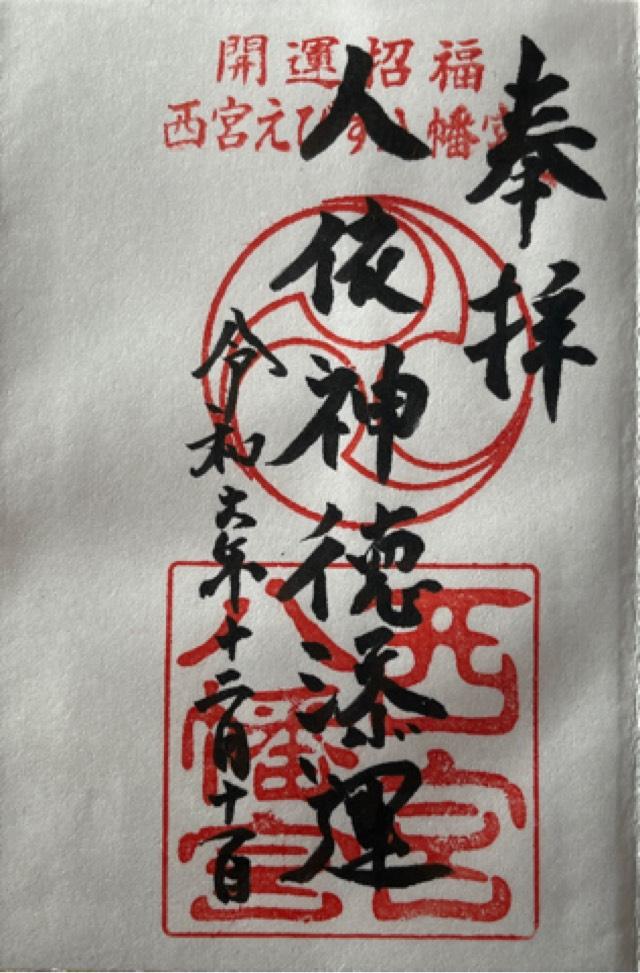 開運招福
西宮えびす八幡宮
奉拝
人依神徳添運
令和六年十二月十一日
西宮
八幡宮